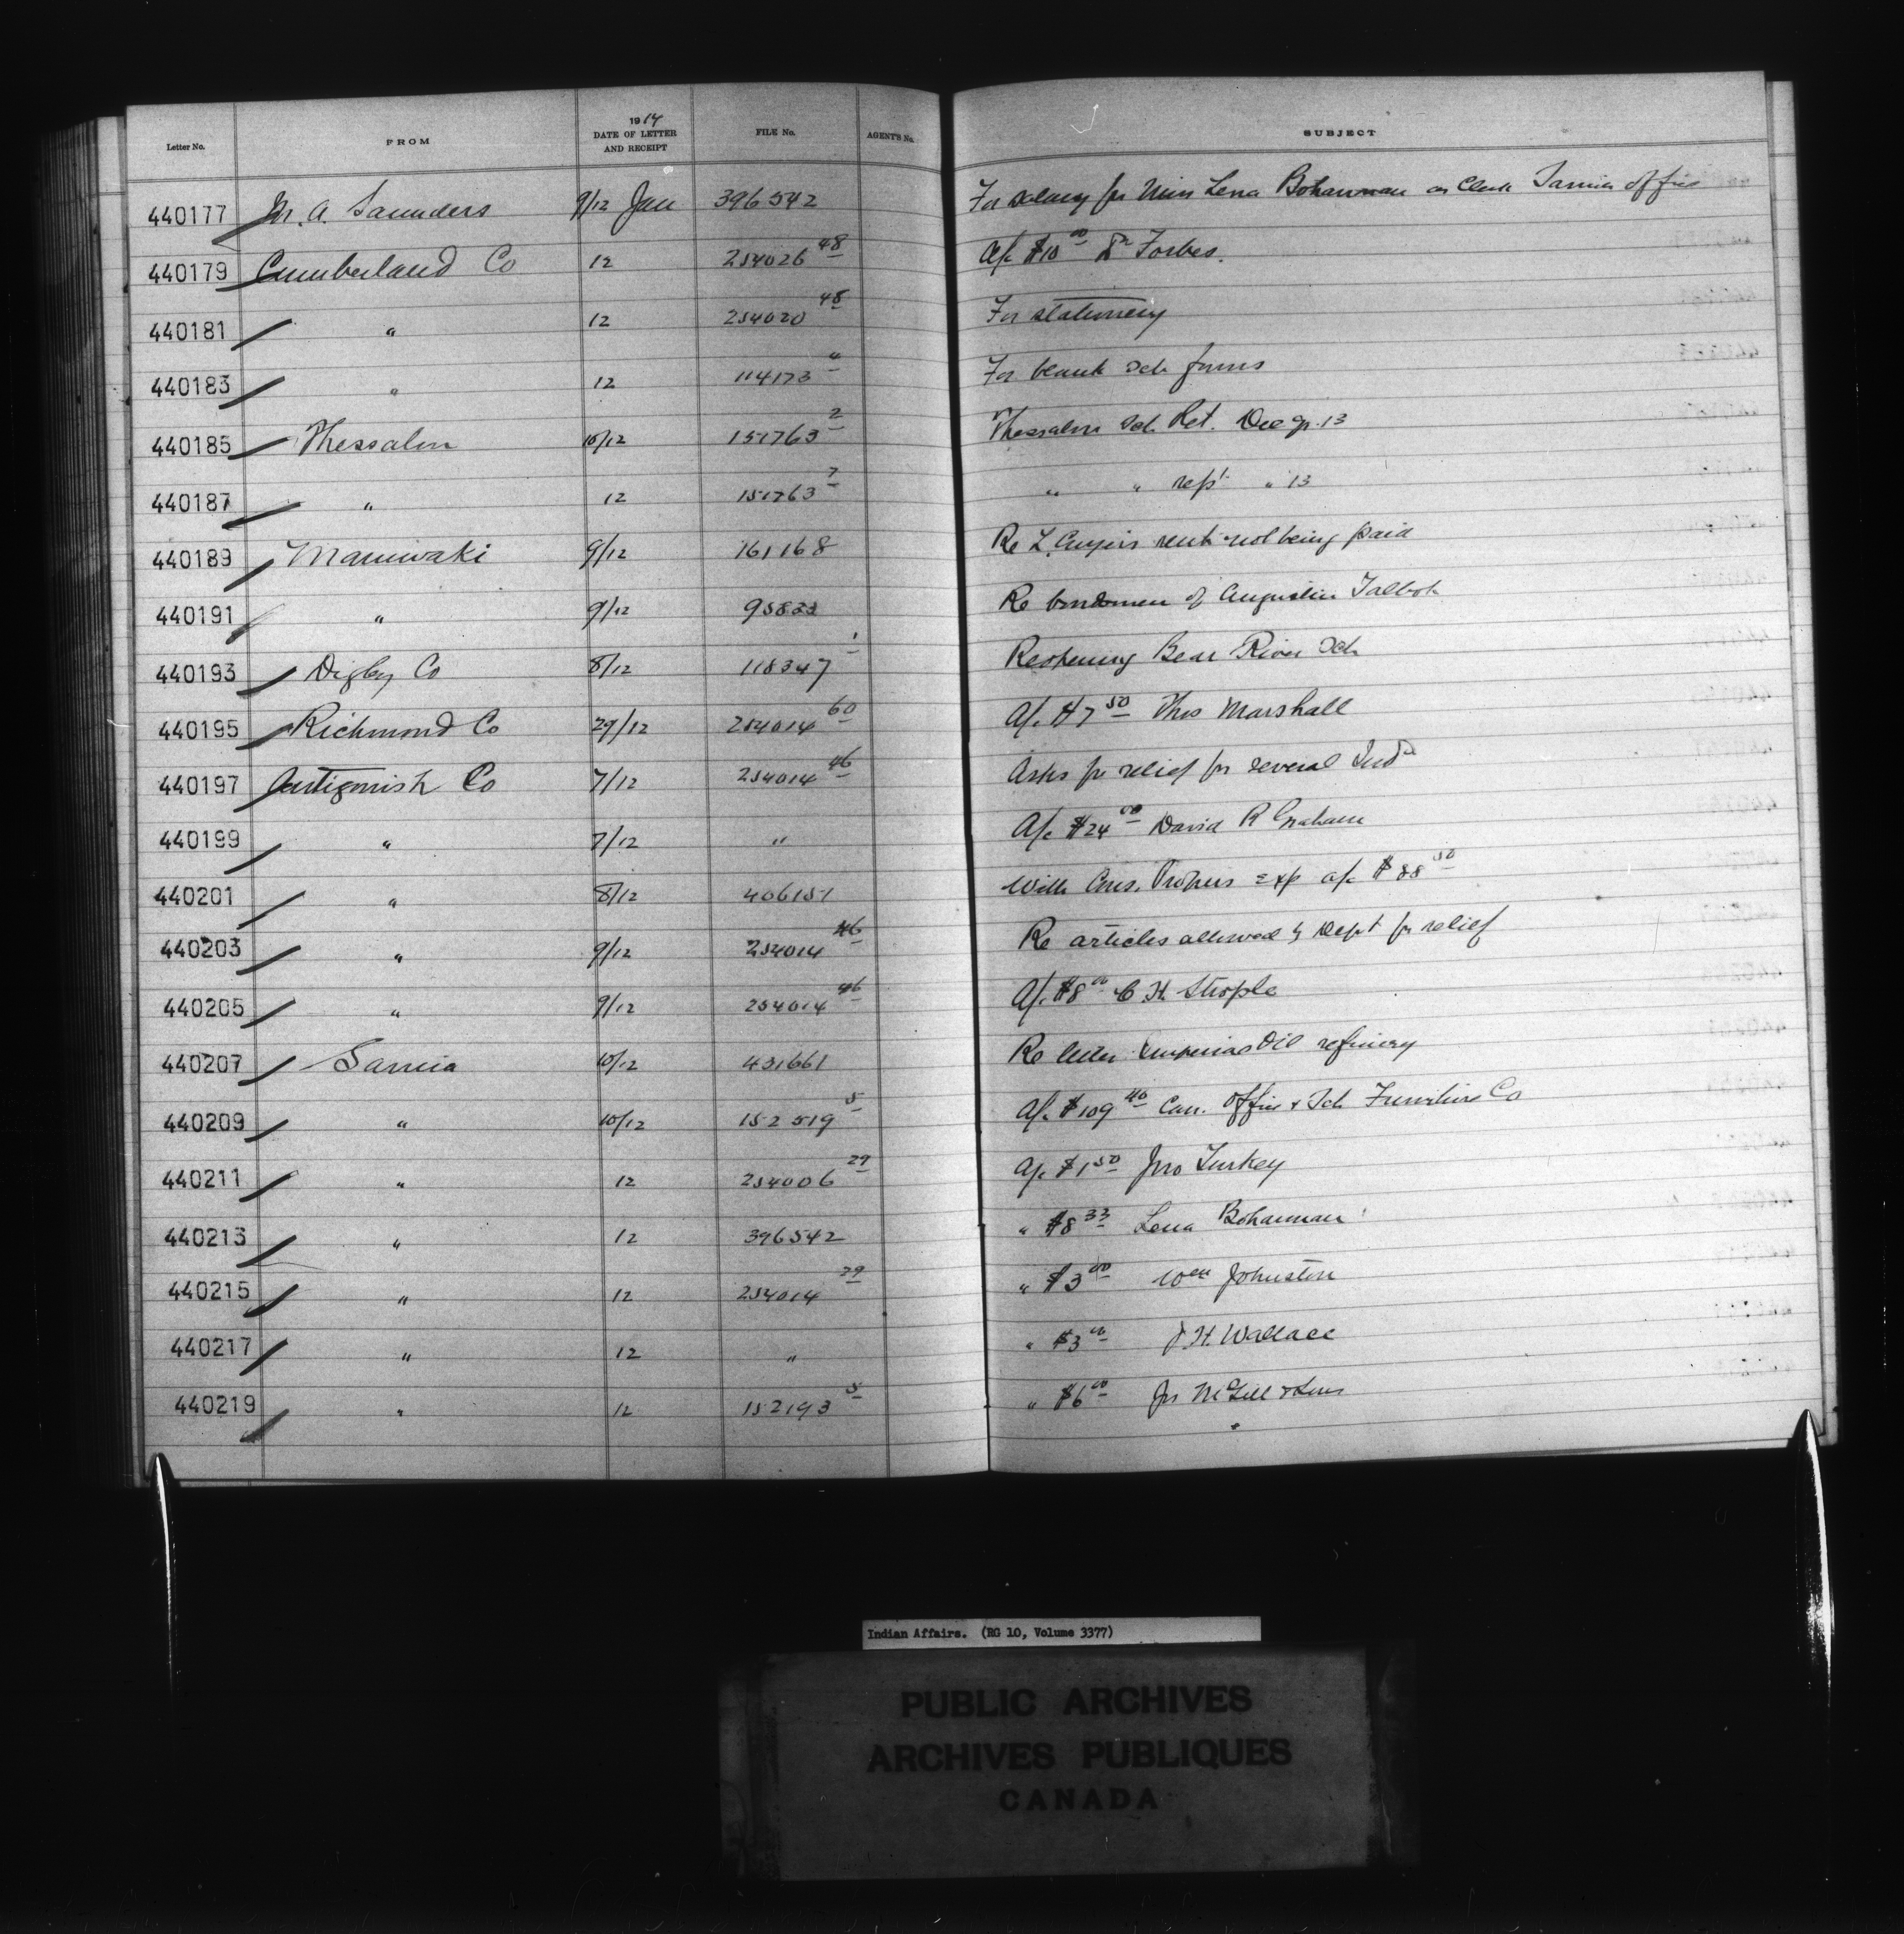 Letter No. FROM 1914 DATE OF LETTER AND RECEIPT FILE No. AGENT'S No. SUBJECT
440177 M. A. Saunders 9/12 Jan 396542 For salary for Miss Lena Bohannan as Clerk Sarnia office
440179 Cumberland Co 12 254026 48 A/c $10 00 Dr Forbes.
440181 " 12 254020 48 For stationery
440183 " 12 114173 " For blank Sch forms
440185 Thessalon 10/12 151763 2 Thessalon Sch Ret. Dec qr. 13
440187 " 12 151763 7 " " rept " 13
440189 Maniwaki 9/12 161168 Re L. rent not being paid
440191 " 9/12 95833 Re bondsmen of Augustin Talbot
440193 Digby Co 8/12 118347 1 Reopening Bear River Sch
440195 Richmond Co 29/12 254014 60 A/c $7 50 Thos Marshall
440197 Antigonish Co 7/12 254014 46 Asks for relief for several Inds
440199 " 7/12 " A/c $24 00 David R Graham
440201 " 8/12 406151 With Cons. exp a/c $88 50
440203 " 9/12 254014 46 Re articles allowed by Dept for relief
440205 " 9/12 254014 46 A/c $8 00 C. H. Strople
440207 Sarnia 10/12 431661 Re letter Imperial Oil refinery
440209 " 10/12 152519 5 A/c $109 40 Can. Office & Sch Furniture Co
440211 " 12 254006 29 A/c $1 50 Jno Turkey
440213 " 12 396542 " $8 33 Lena Bohannan
440215 " 12 254014 29 " $3 00 Wm Johnston
440217 " 12 " " $3 00 J H. Wallace
440219 " 12 152193 5 " $6 00 Jas McGill & Sons
Indian Affairs. (RG 10, Volume 3377)
PUBLIC ARCHIVES
ARCHIVES PUBLIQUES
CANADA